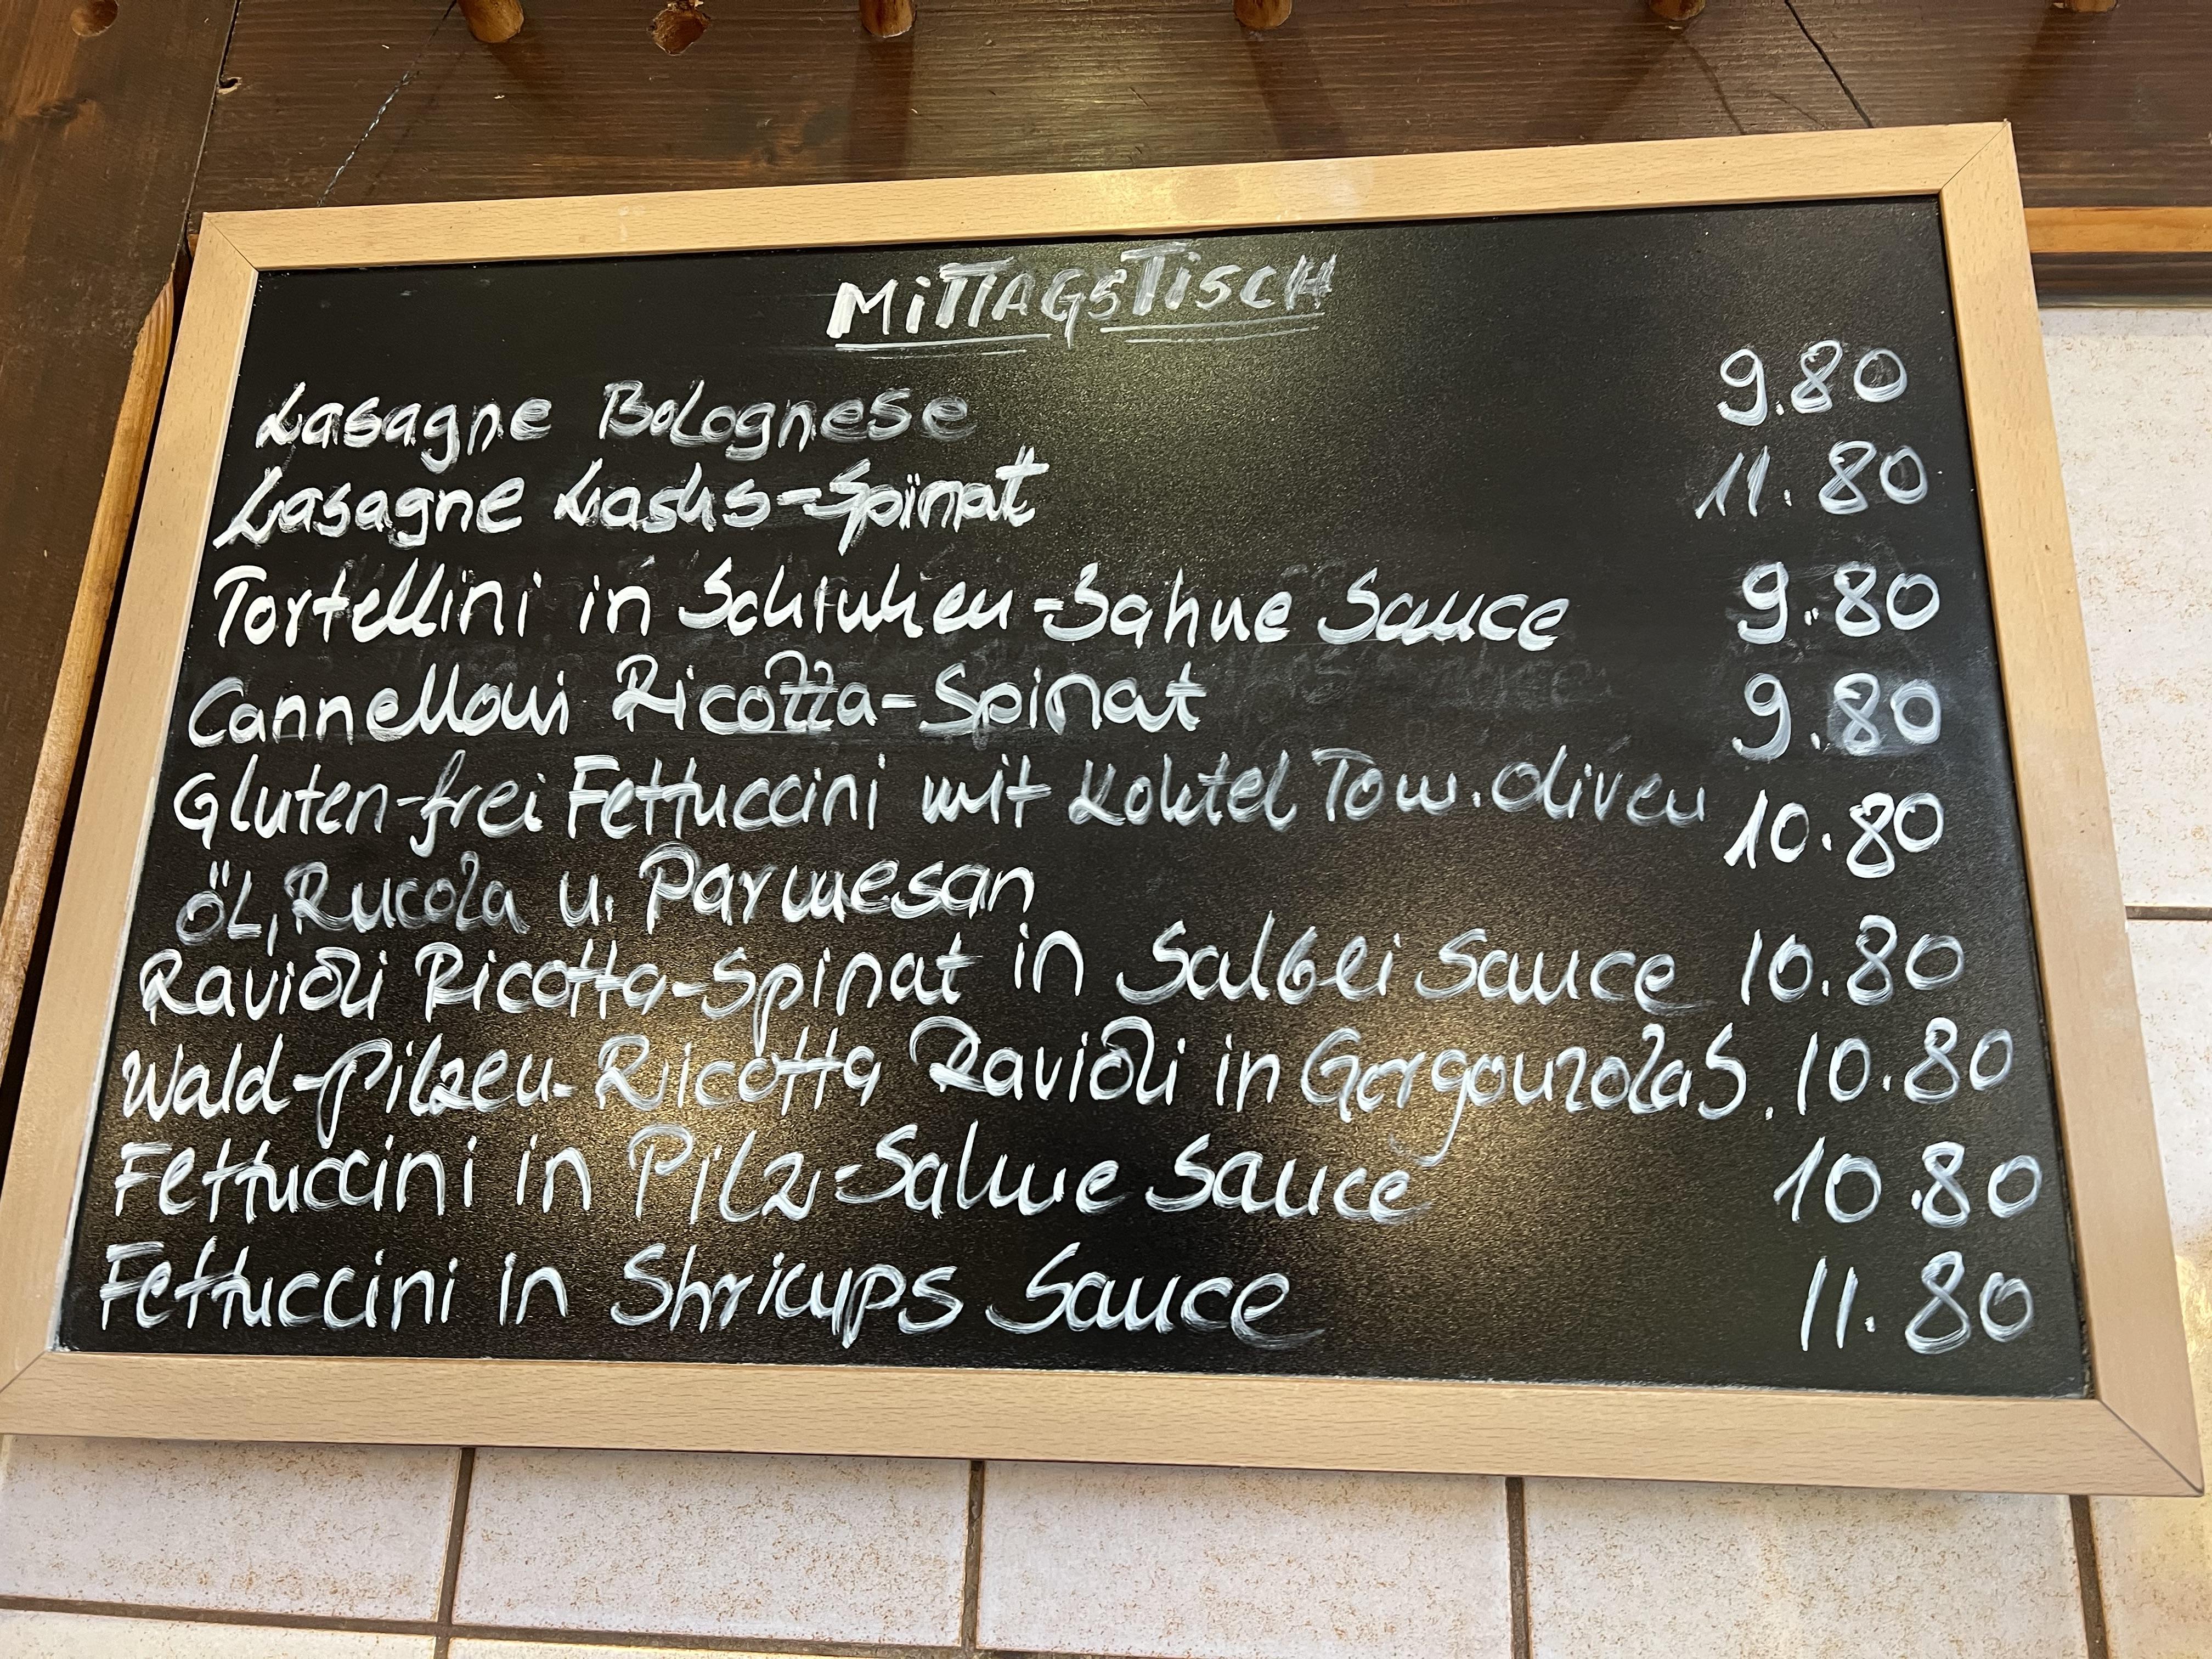 MITTAGSTISCH
Lasagne Bolognese 9.80
Lasagne Lachs-Spinat 11.80
Tortellini in Schinken-Sahne Sauce 9.80
Cannelloni Ricotta-Spinat 9.80
Gluten-frei Fettuccini mit Koktel Tom. Oliven 10.80
ÖL, Rucola u. Parmesan
Ravioli Ricotta-Spinat in Salbei Sauce 10.80
Wald-Pilzen-Ricotta Ravioli in Gorgonzola S. 10.80
Fettuccini in Pilz-Sahne Sauce 10.80
Fettuccini in Shrimps Sauce 11.80